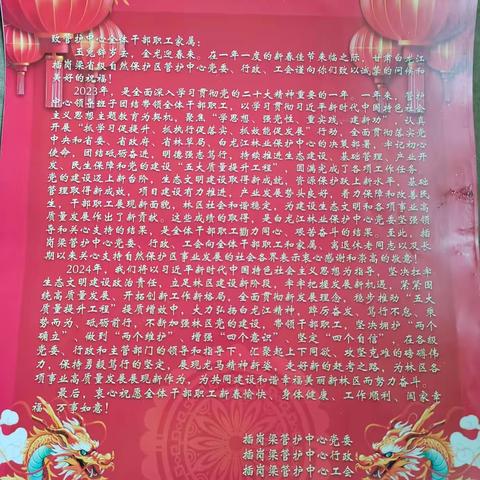 致管护中心全体干部职工家属：
玉兔辞岁去，金龙迎春来。在一年一度的新春佳节来临之际，甘肃白龙江
插岗梁省级自然保护区管护中心党委、行政、工会谨向你们致以诚挚的问候和
美好的祝福！
2023年，是全面深入学习贯彻党的二十大精神重要的一年。一年来，管护
中心领导班子团结带领全体干部职工，以学习贯彻习近平新时代中国特色社会
主义思想主题教育为契机，聚焦“学思想、强党性、重实践、建新功”，认真
开展“抓学习促提升、抓执行促落实、抓效能促发展”行动，全面贯彻落实党
中央和省委、省政府、省林草局、白龙江林业保护中心的决策部署，牢记初心
使命，团结砥砺奋进，明德强志笃行，持续推进生态建设、基础管理、产业开
发、民生保障和党的建设“五大质量提升工程”，圆满完成了各项工作任务。
党的建设迈上新台阶，生态文明建设取得新成效，资源保护跃上新水平，基础
管理取得新成效，项目建设有力推进，产业发展势头良好，着力保障和改善民
生，干部职工展现新面貌，林区社会和谐稳定，为建设生态文明和各项事业高
质量发展作出了新贡献。这些成绩的取得，是白龙江林业保护中心党委坚强领
导和关心支持的结果，是全体干部职工勠力同心、艰苦奋斗的结果。至此，插
岗梁管护中心党委、行政、工会向全体干部职工和家属、离退休老同志以及长
期以来关心支持自然保护区事业发展的社会各界表示衷心感谢和崇高的敬意！
2024年，我们将以习近平新时代中国特色社会主义思想为指导，坚决扛牢
生态文明建设政治责任，立足林区建设新阶段，牢牢把握发展新机遇，紧紧围
绕高质量发展、开拓创新工作新格局，全面贯彻新发展理念，稳步推动“五大
质量提升工程”提质增效中，大力弘扬白龙江精神，踔厉奋发、笃行不怠、乘
势而为、砥砺前行，不断加强林区党的建设，带领干部职工，坚决拥护“两个
确立”、做到“两个维护”、增强“四个意识”、坚定“四个自信”，在各级
党委、行政和主管部门的领导和指导下，汇聚起上下同欲、攻坚克难的磅礴伟
力，保持勇毅笃行的坚定，展现龙马精神新姿，走好新的赶考之路，为林区各
项事业高质量发展展现新作为，为共同建设和谐幸福美丽新林区而努力奋斗。
最后，衷心祝愿全体干部职工新春愉快、身体健康、工作顺利、阖家幸
福、万事如意！
插岗梁管护中心党委
插岗梁管护中心行政
插岗梁管护中心工会